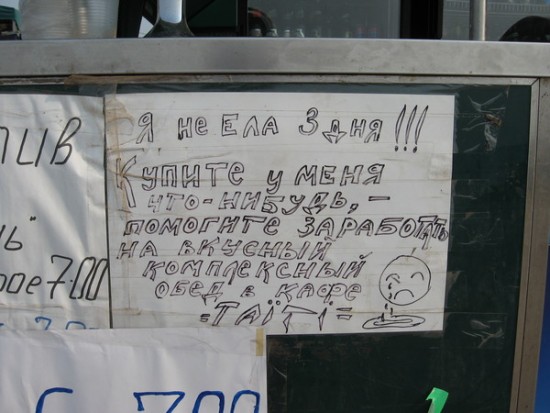 Я не ЕЛА 3 дня!!!
КУПИТЕ У МЕНЯ
ЧТО-НИБУДЬ, -
ПОМОГИТЕ ЗАРАБОТАТЬ
НА ВКУСНЫЙ
КОМПЛЕКСНЫЙ
ОБЕД В КАФЕ
=ТАЇТІ=
700
700